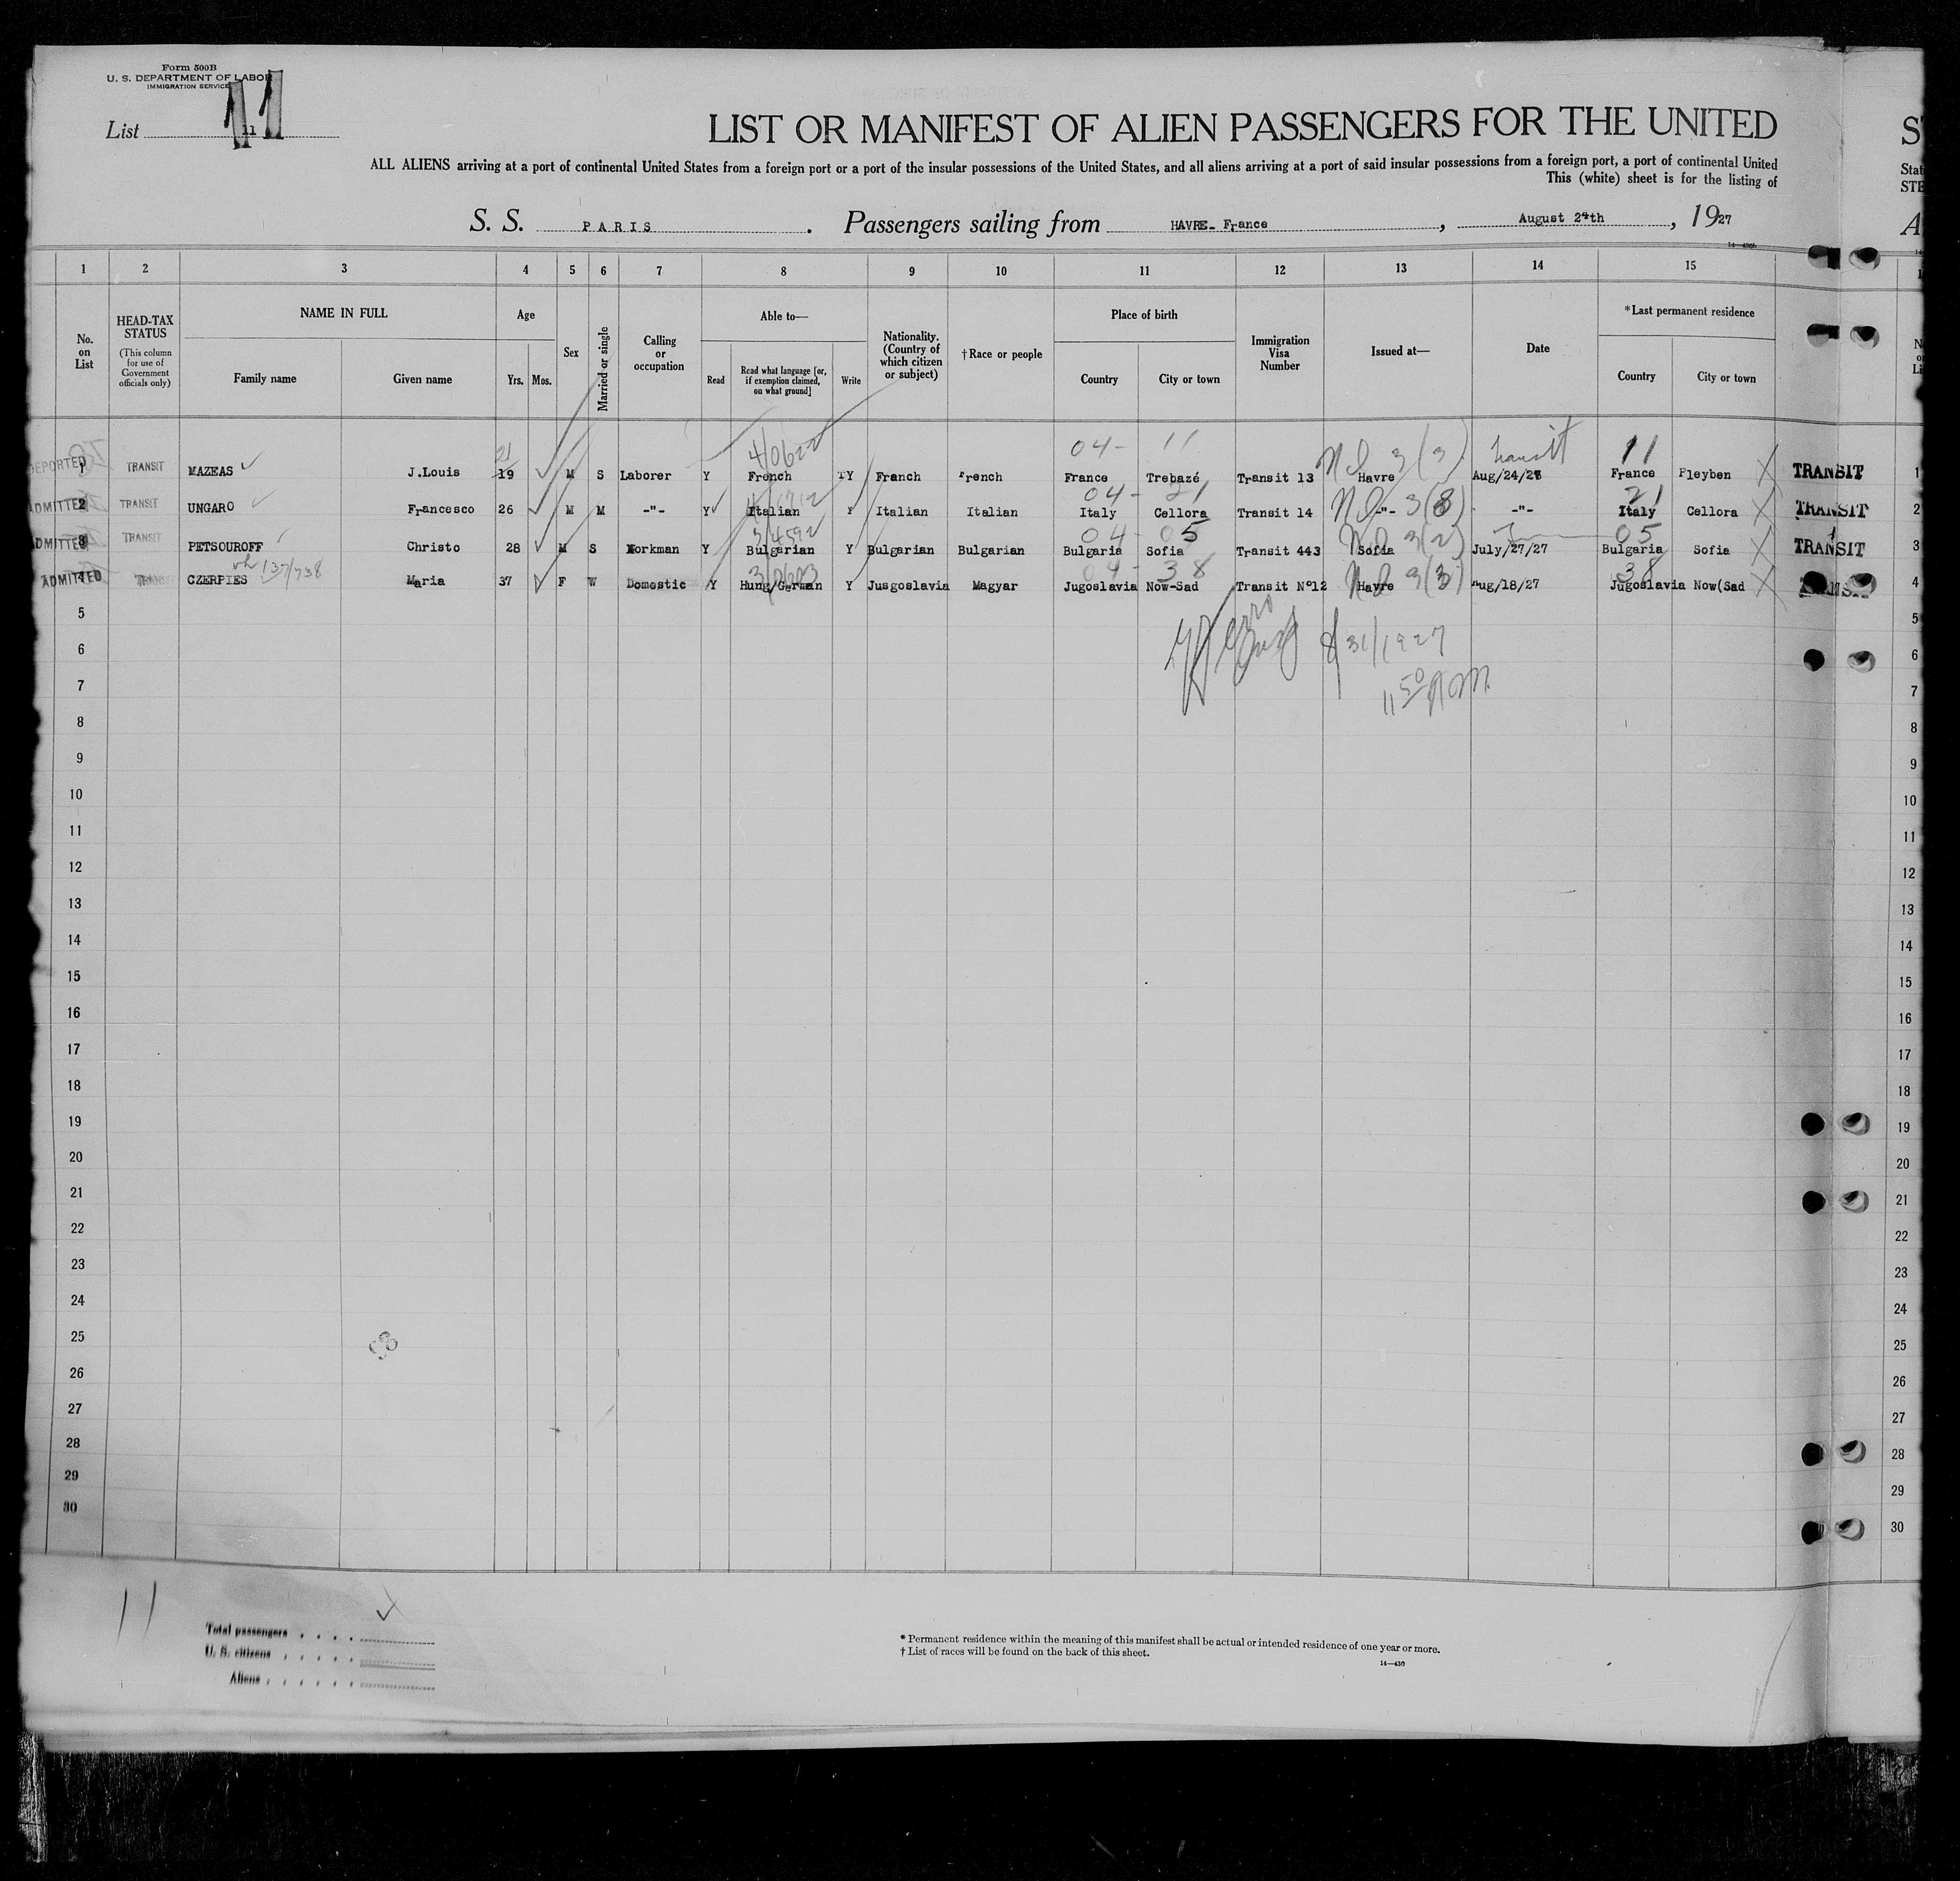 Form 500B
U. S. DEPARTMENT OF LABOR
IMMIGRATION SERVICE
List 11
11
LIST OR MANIFEST OF ALIEN PASSENGERS FOR THE UNITED
ALL ALIENS arriving at a port of continental United States from a foreign port or a port of the insular possessions of the United States, and all aliens arriving at a port of said insular possessions from a foreign port, a port of continental United
This (white) sheet is for the listing of
S. S. PARIS. Passengers sailing from HAVRE- France, August 24th, 1927
14—430b
1 2 3 4 5 6 7 8 9 10 11 12 13 14 15
No. on List
HEAD-TAX STATUS
(This column for use of Government officials only)
NAME IN FULL
Family name Given name
Age
Yrs. Mos.
Sex
Married or single
Calling or occupation
Able to—
Read
Read what language [or, if exemption claimed, on what ground]
Write
Nationality. (Country of which citizen or subject)
†Race or people
Place of birth
Country City or town
Immigration Visa Number
Issued at—
Date
*Last permanent residence
Country City or town
21 4/0622 04- 11 ND 3(3) Transit 11
DEPORTED 1 TRANSIT MAZEAS J.Louis 19 M S Laborer Y French Y Franch French France Trebazé Transit 13 Havre Aug/24/27 France Pleyben TRANSIT 1
04- 21 ND 3(8) 21
ADMITTED 2 TRANSIT UNGARO Francesco 26 M M -"- Y Italian Y Italian Italian Italy Cellora Transit 14 -"- -"- Italy Cellora TRANSIT 2
3/4592 04 05 ND 3(2) 05
ADMITTED 3 TRANSIT PETSOUROFF Christo 28 M S Workman Y Bulgarian Y Bulgarian Bulgarian Bulgaria Sofia Transit 443 Sofia July/27/27 Bulgaria Sofia TRANSIT 3
137/738 3/0603 04- 38 ND 3(3) 38
ADMITTED 4 TRANSIT CZERPIES Maria 37 F W Domestic Y Hung/German Y Jusgoslavia Magyar Jugoslavia Now-Sad Transit Nº12 Havre Aug/18/27 Jugoslavia Now(Sad TRANSIT 4
5 5
8/31/1927
6 6
7 7
11 50 AM
8 8
9 9
10 10
11 11
12 12
13 13
14 14
15 15
16 16
17 17
18 18
19 19
20 20
21 21
22 22
23 23
24 24
25 25
26 26
27 27
28 28
29 29
30 30
11
Total passengers
U. S. citizens
Aliens
* Permanent residence within the meaning of this manifest shall be actual or intended residence of one year or more.
† List of races will be found on the back of this sheet.
14—430